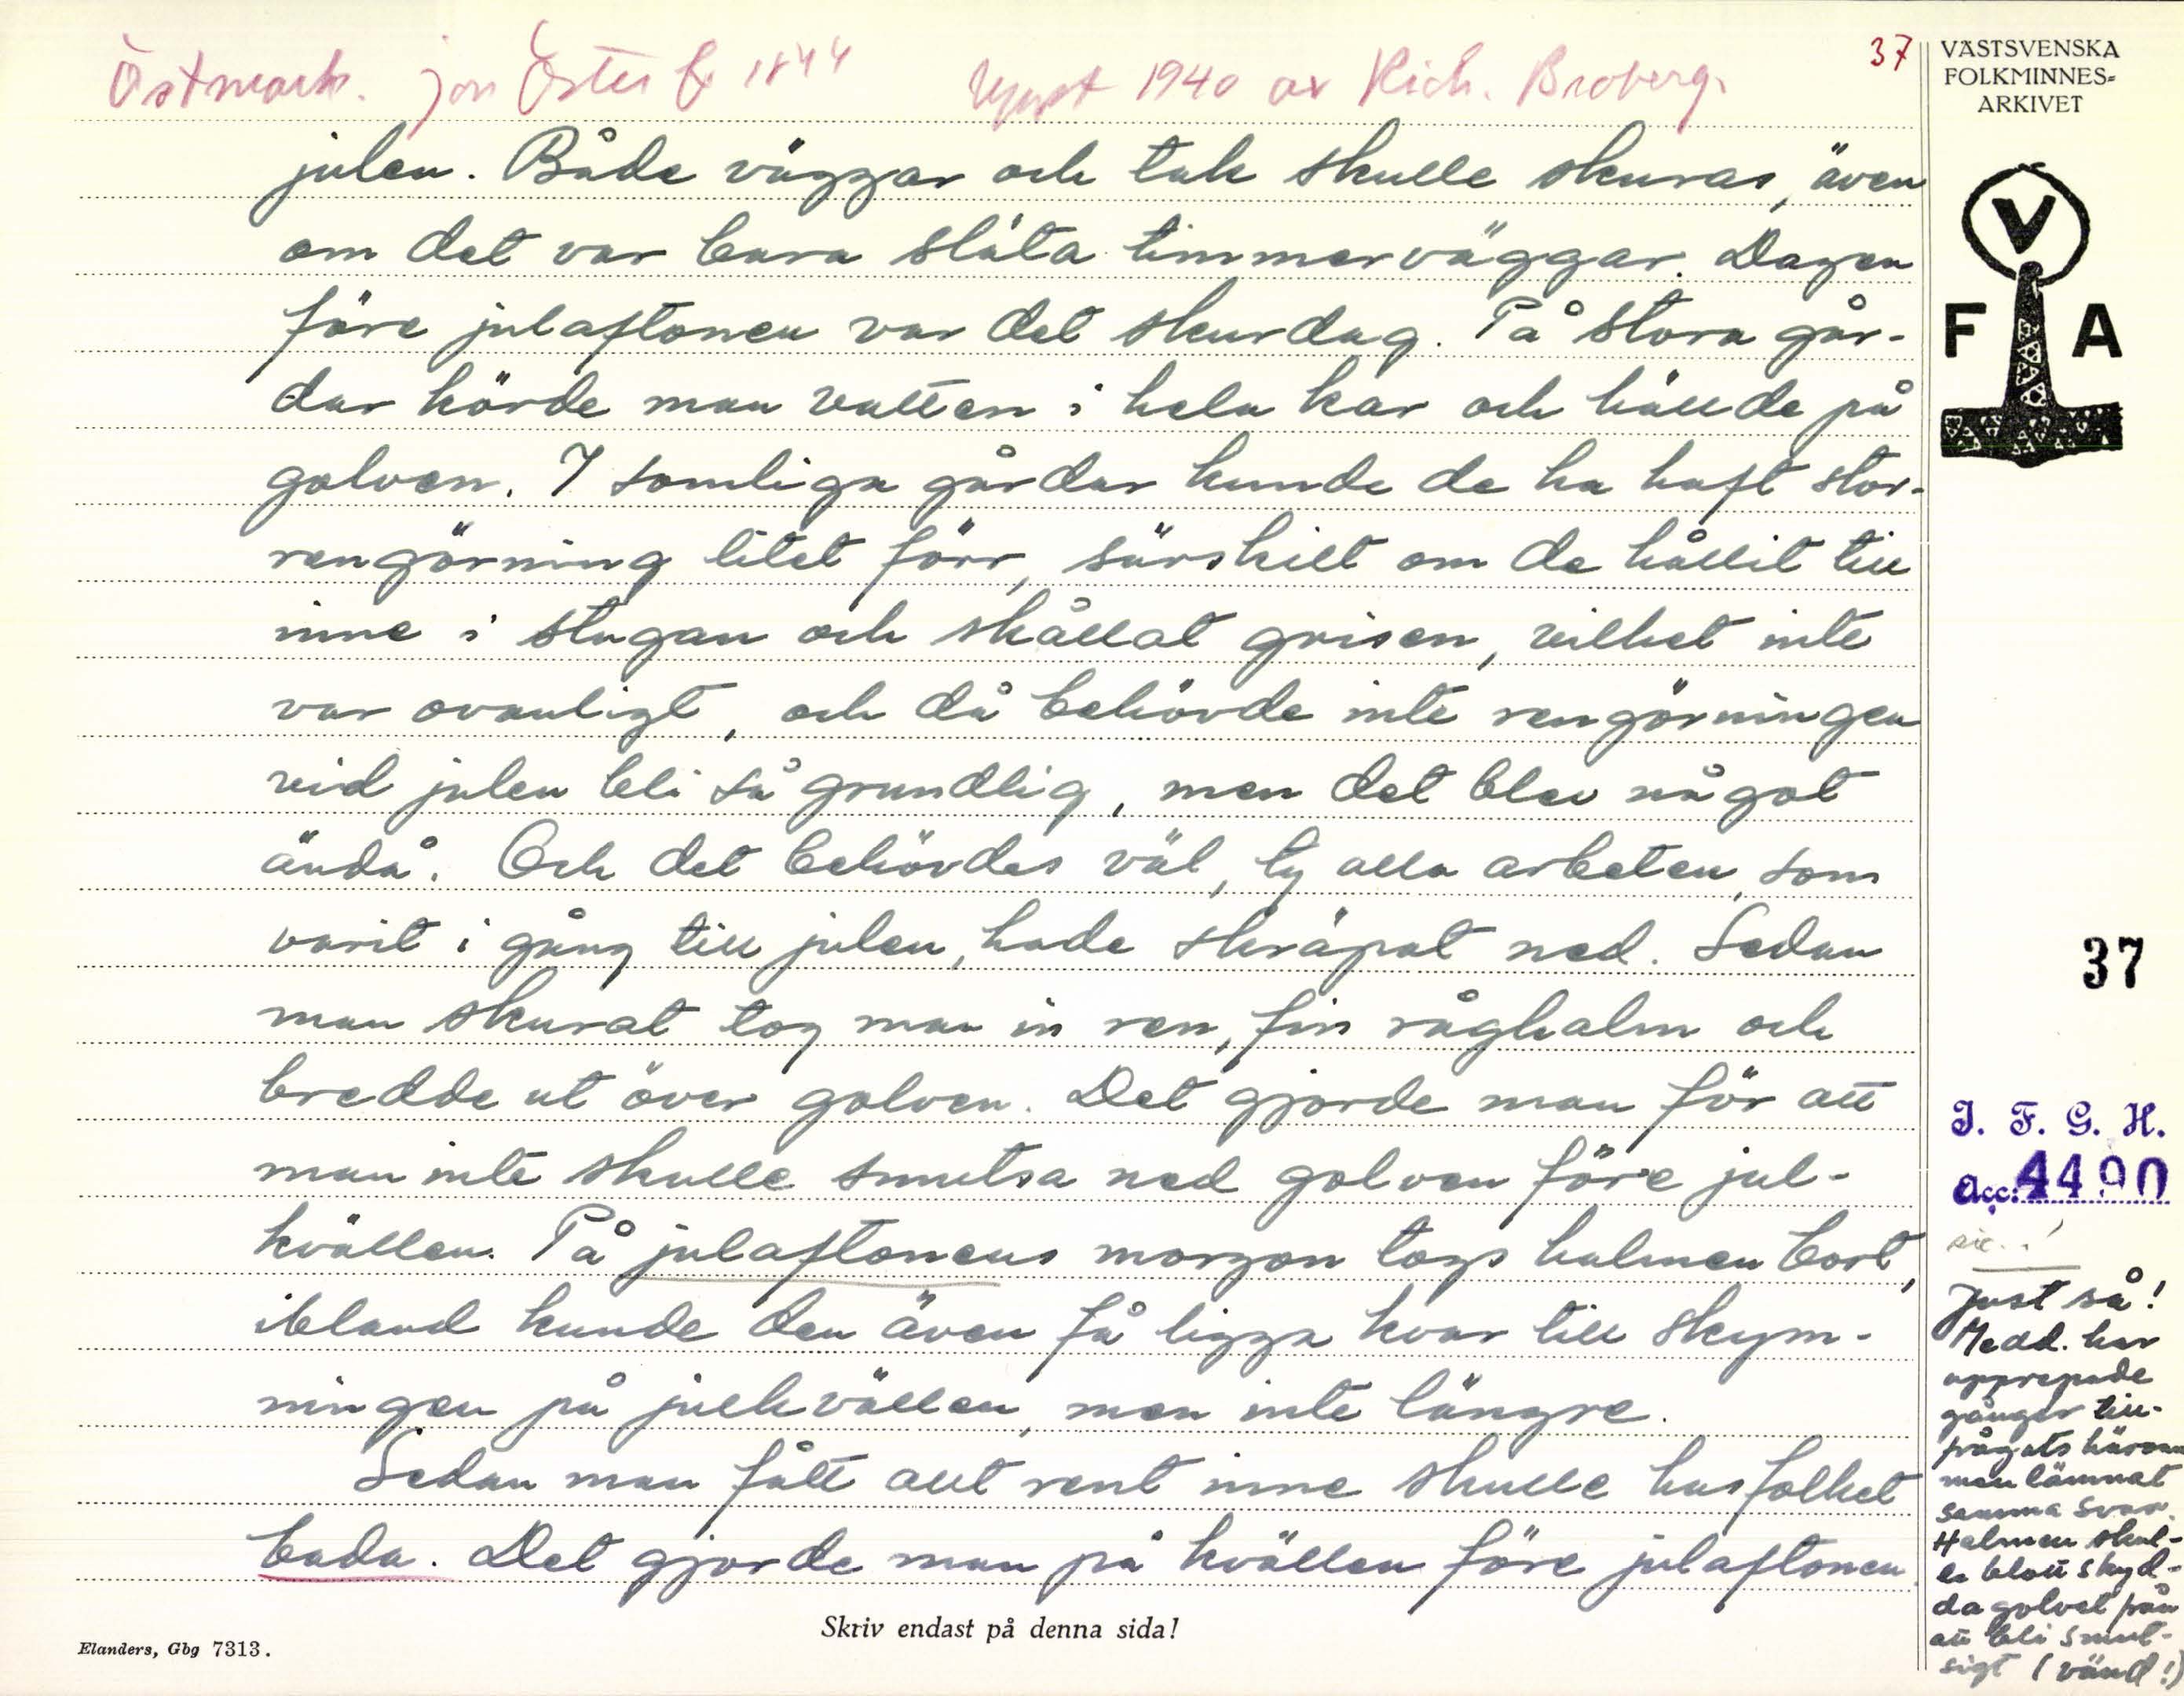 Östmark. Jon Öster f. 1844 Uppt 1940 av Rich. Broberg.
37
VÄSTSVENSKA
FOLKMINNES=
ARKIVET
V
F A
julen. Både väggar och tak skulle skuras, även
om det var bara släta timmerväggar. Dagen
före julaftonen var det skurdag. På stora går-
dar körde man vatten i hela kar och hällde på
golven. I somliga gårdar kunde de ha haft stor-
rengörning litet förr, särskilt om de hållit till
inne i stugan och skållat grisen, vilket inte
var ovanligt, och då behövde inte rengörningen
vid julen bli så grundlig, men det blev något
ändå. Och det behövdes väl, ty alla arbeten, som
varit i gång till julen, hade skräpat ned. Sedan
man skurat tog man in ren, fin råghalm och
bredde ut över golven. Det gjorde man för att
man inte skulle smutsa ned golven före jul-
kvällen. På julaftonens morgon togs halmen bort,
ibland kunde den även få ligga kvar till skym-
ningen på julkvällen, men inte längre.
Sedan man fått allt rent inne skulle husfolket
bada. Det gjorde man på kvällen före julaftonen.
37
I. F. G. H.
Acc: 4490
sic..!
Just så!
Medd. har
upprepade
gånger till-
frågats härom
men lämnat
samma svar.
Halmen skul-
le blott skyd-
da golvet från
att bli smut-
sigt (vänd!)
Skriv endast på denna sida!
Elanders, Gbg 7313.